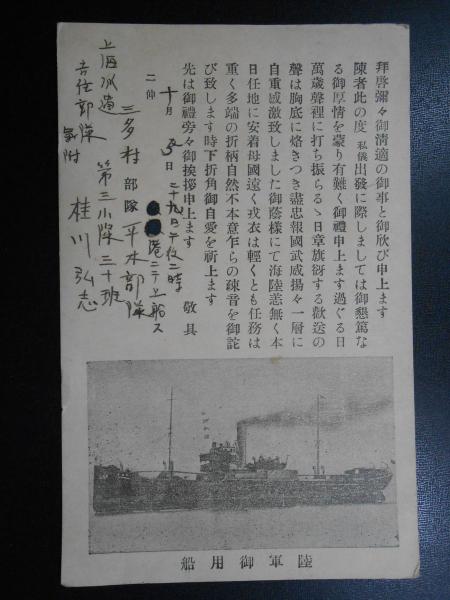 拜啓彌々御清適の御事と御欣び申上ます
陳者此の度 私儀 出發に際しましては御懇篤な
る御厚情を蒙り有難く御禮申上ます過ぐる日
萬歳聲裡に打ち振らるゝ日章旗谺する歡送の
聲は胸底に烙きつき盡忠報國武威揚々一層に
自重感激致しました御蔭樣にて海陸恙無く本
日任地に安着母國遠く戎衣は輕くとも任務は
重く多端の折柄自然不本意乍らの疎音を御詫
び致します時下折角御自愛を祈上ます
先は御禮旁々御挨拶申上ます
敬具
十月 日 二十九日午後二時
港ニテ上船ス
二伸
三多村部隊平木部隊
第三小隊三十班
上海派遣
吉住部隊
氣附
桂川弘志
陸軍御用船